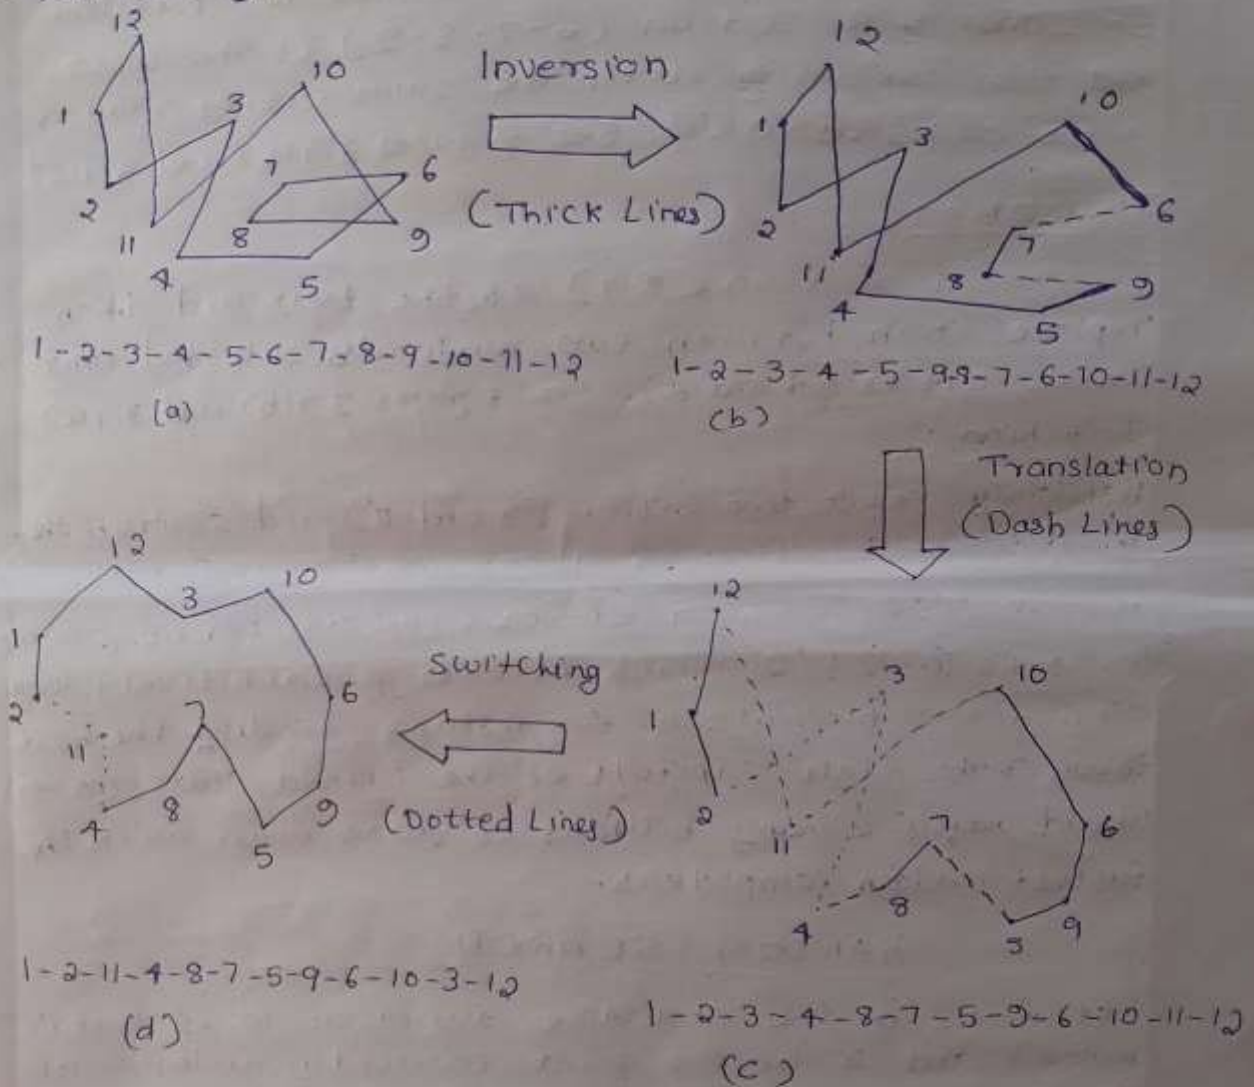 12
1
3
10
7
6
2
11
8
9
4
5
1-2-3-4-5-6-7-8-9-10-11-12
(a)
Inversion
(Thick Lines)
12
1
3
10
2
6
7
11
8
9
4
5
1-2-3-4-5-9-8-7-6-10-11-12
(b)
Translation
(Dash Lines)
12
3
10
1
2
6
11
7
4
8
9
5
1-2-3-4-8-7-5-9-6-10-11-12
(c)
Switching
(Dotted Lines)
12
10
3
1
2
6
7
11
4
8
9
5
1-2-11-4-8-7-5-9-6-10-3-12
(d)